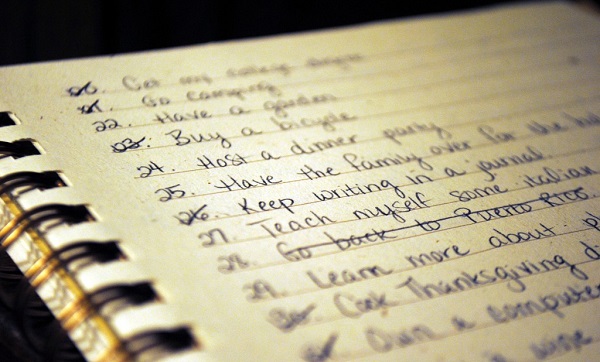 20. Get my college degree
21. Go camping
22. Have a garden
23. Buy a bicycle
24. Host a dinner party
25. Have the family over for the
26. Keep writing in a journal.
27. Teach myself some italian
28. Go back to Puerto Rico.
29. Learn more about
30. Cook Thanksgiving
Own a computer